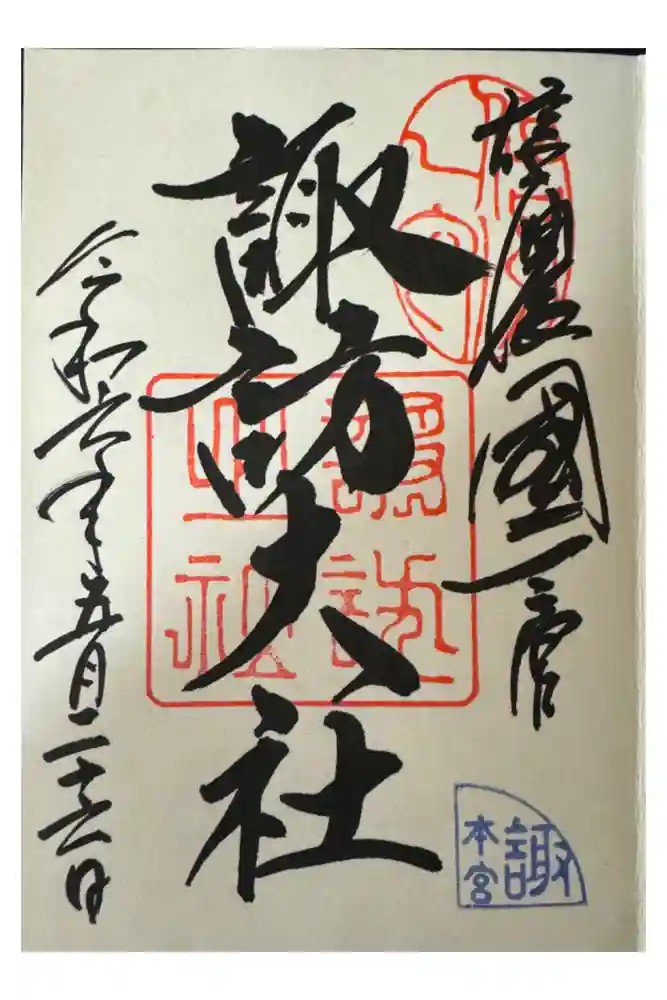 信濃國一宮
諏訪大社
令和六年五月二十六日
諏
本宮